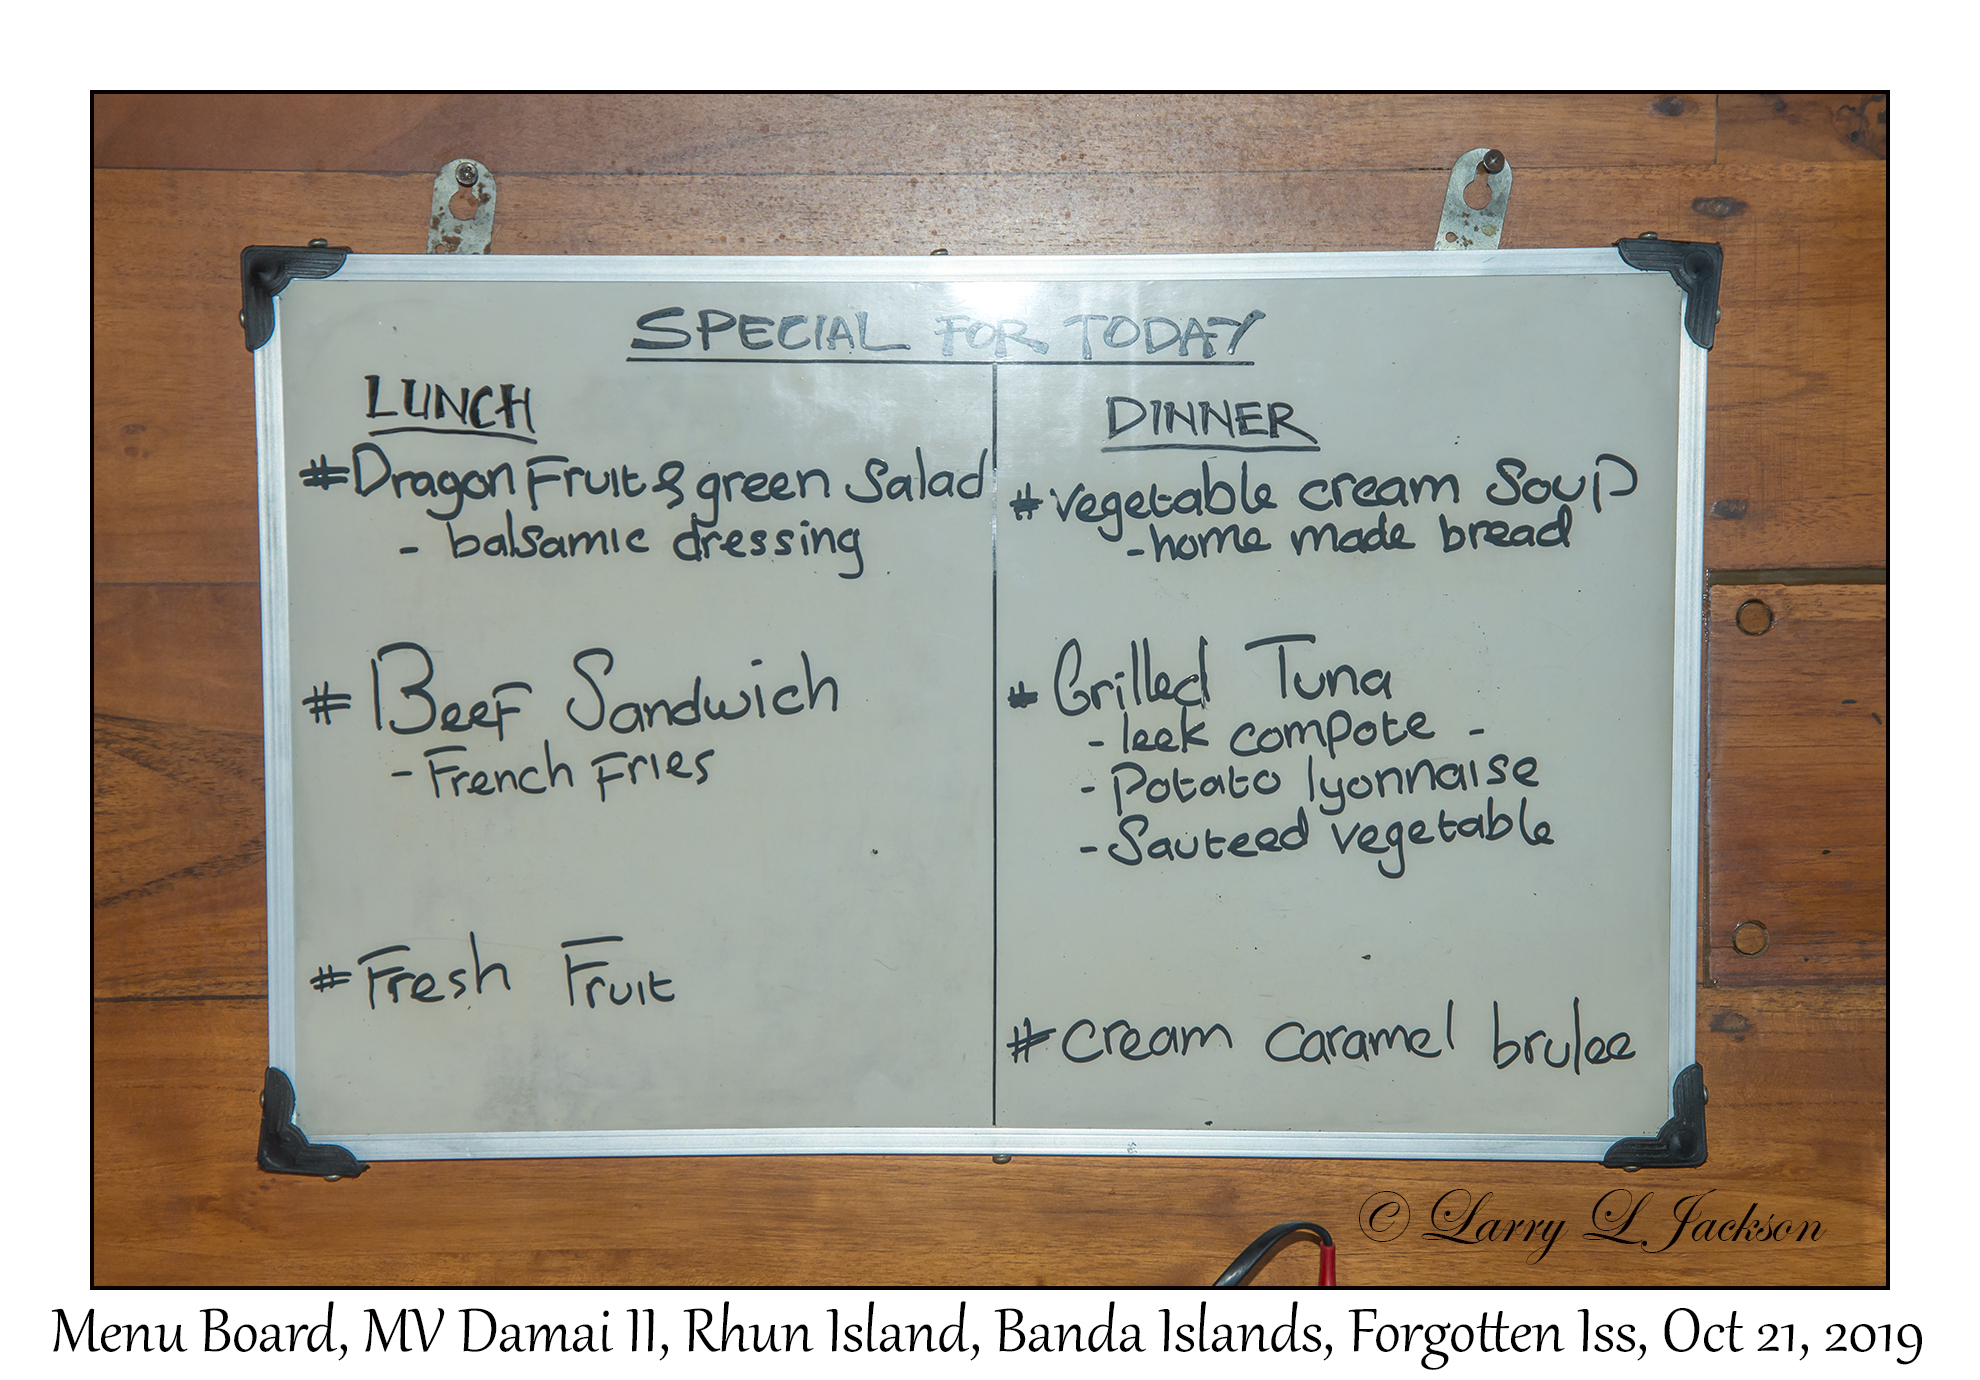 SPECIAL FOR TODAY
LUNCH
#Dragon Fruit & green Salad
- balsamic dressing
# Beef Sandwich
- French Fries
# Fresh Fruit
DINNER
# vegetable cream Soup
- home made bread
# Grilled Tuna
- leek compote -
- Potato lyonnaise
- Sauteed vegetable
# cream caramel brulee
© Larry L Jackson
Menu Board, MV Damai II, Rhun Island, Banda Islands, Forgotten Iss, Oct 21, 2019